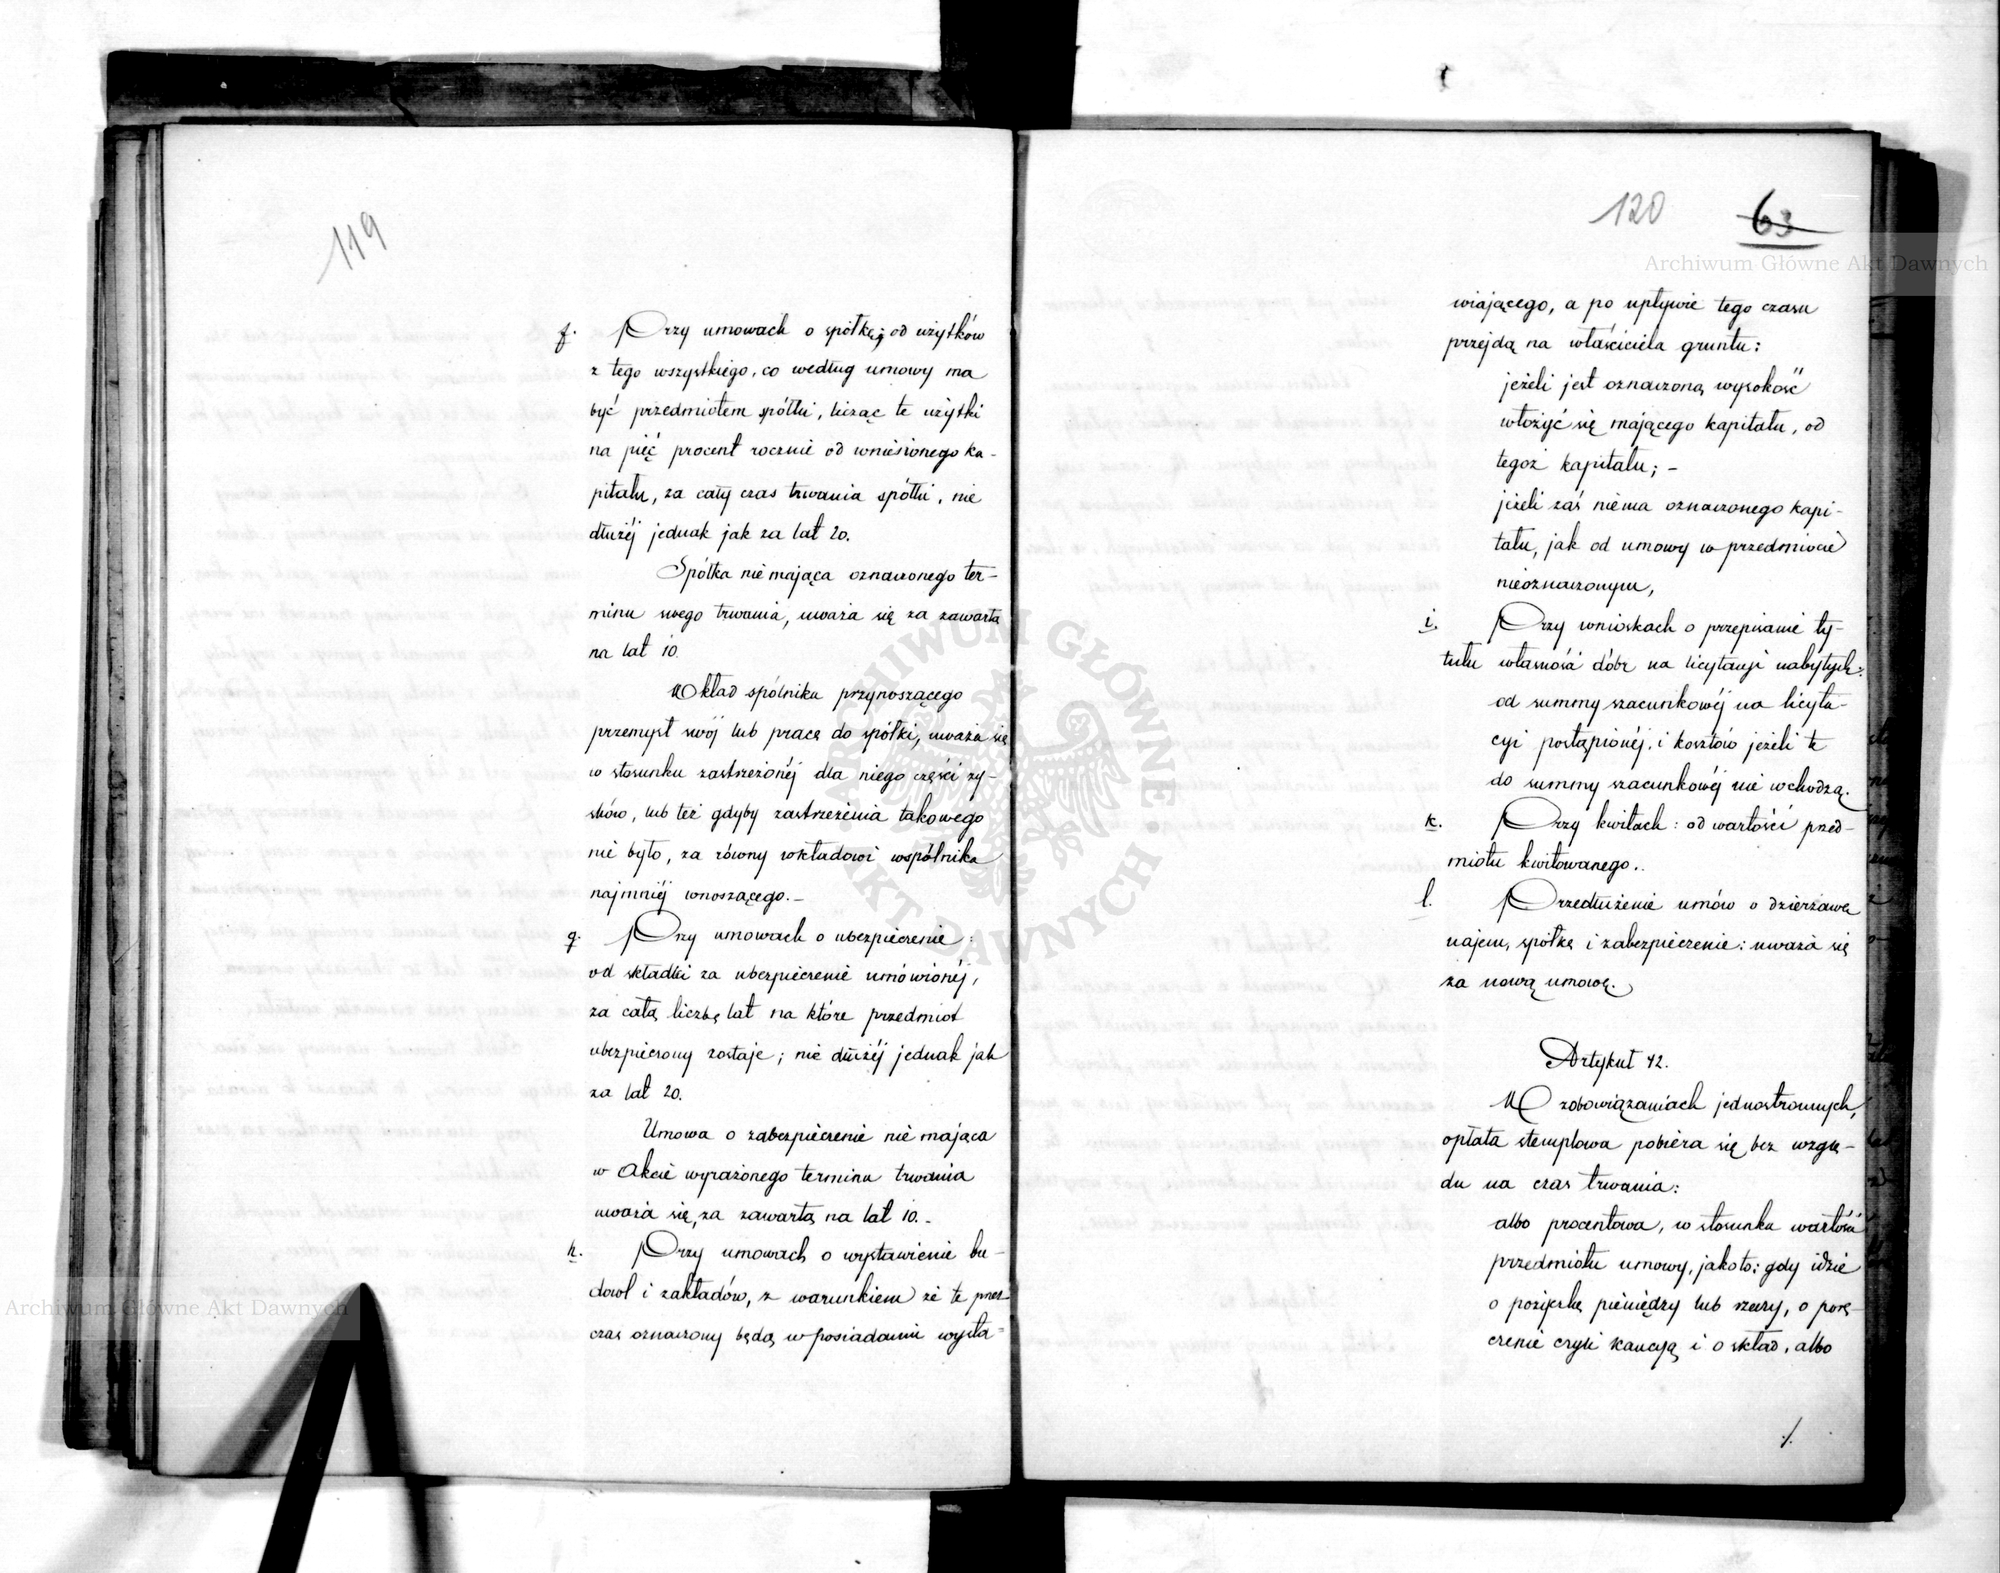 119
f. Przy umowach o spółkę; od użytków
z tego wszystkiego, co według umowy ma
być przedmiotem spółki, licząc te użytki
na pięć procent rocznie od wniesionego ka-
pitału, za cały czas trwania spółki, nie
dłużéj jednak jak za lat 20.
Spółka nie mająca oznaczonego ter-
minu swego trwania, uważa się za zawartą
na lat 10.
Wkład spólnika przynoszącego
przemysł swój lub pracę do spółki, uważa się
w stosunku zastrzeżonéj dla niego części zy-
sków, lub też gdyby zastrzeżenia takowego
nie było, za równy wkładowi wspólnika
najmniéj wnoszącego.–
g. Przy umowach o ubezpieczenie:
od składki za ubezpieczenie umówionéj,
za całą liczbę lat na które przedmiot
ubezpieczony zostaje; nie dłużéj jednak jak
za lat 20.
Umowa o zabezpieczenie nie mająca
w Akcie wyrażonego terminu trwania
uważa się, za zawartą na lat 10.–
h. Przy umowach o wystawienie bu-
dowl i zakładów, z warunkiem że te przez
czas oznaczony będą w posiadaniu wysta-
120 63
wiającego, a po upływie tego czasu
przejdą na właściciela gruntu:
jeżeli jest oznaczoną wysokość
włożyć się mającego kapitału, od
tegoż kapitału; –
jeżeli zaś niema oznaczonego kapi-
tału, jak od umowy w przedmiocie
nieoznaczonym,
i. Przy wnioskach o przepisanie ty-
tułu własności dóbr na licytacyi nabytych:
od summy szacunkowéj na licyta-
cyi postąpionéj, i kosztów jeżeli te
do summy szacunkowéj nie wchodzą.
k. Przy kwitach: od wartości przed-
miotu kwitowanego..
l. Przedłużenie umów o dzierżawę
najem, spółkę i zabezpieczenie: uważa się
za nową umowę.
Artykuł 42.
W zobowiązaniach jednostronnych,
opłata stemplowa pobiera się bez wzglę-
du na czas trwania:
albo procentowa, w stosunku wartości
przedmiotu umowy, jakoto: gdy idzie
o pożyczkę pieniędzy lub rzeczy, o porę-
czenie czyli kaucyą i o skład, albo
./.
Archiwum Główne Akt Dawnych
Archiwum Główne Akt Dawnych
ARCHIWUM GŁÓWNE AKT DAWNYCH